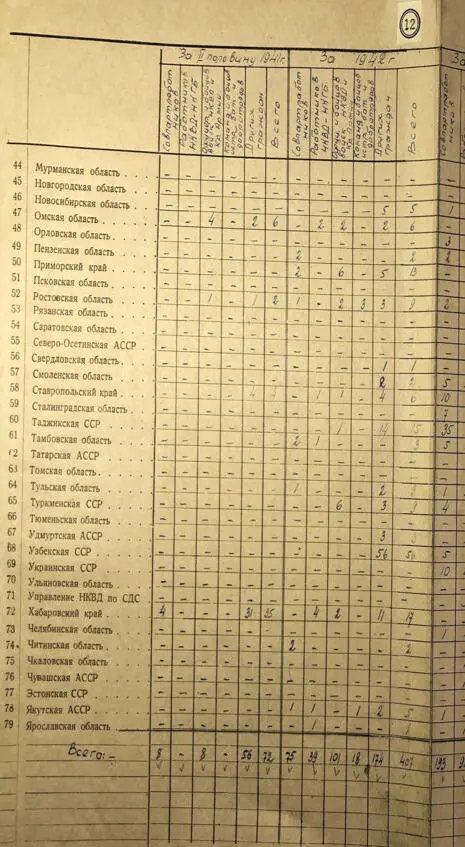 12
За II половину 1941г.
За 1942г.
За
Совпартработников
Работников НКВД-НКГБ
Всего
Совпартработников
Работников НКВД-НКГБ
Других граждан
Всего
Совпартработников
44 Мурманская область - - - - - - - - - - - -
45 Новгородская область - - - - - - - - - - - -
46 Новосибирская область - - - - - - - - - - 5 5 1
47 Омская область - - 4 - 2 6 - 2 2 - 2 6
48 Орловская область - - - - - - - - - - - - 3
49 Пензенская область - - - - - - 2 - - - - 2 2
50 Приморский край - - - - - - 2 - 6 - 5 13
51 Псковская область - - - - - - - - - - - -
52 Ростовская область - - 1 - 1 2 1 - 2 3 3 9 2
53 Рязанская область - - - - - - - - - - - -
54 Саратовская область - - - - - - - - - - - -
55 Северо-Осетинская АССР - - - - - - - - - - - -
56 Свердловская область - - - - - - - - - - 1 1
57 Смоленская область - - - - - - - - - - 2 2 5
58 Ставропольский край - - - - 4 4 - 1 1 - 4 6 10
59 Сталинградская область - - - - - - - - - - - - 7
60 Таджикская ССР - - - - - - - - 1 - 14 15 35
61 Тамбовская область - - - - - - 2 1 - - - 3 5
62 Татарская АССР - - - - - - - - - - - -
63 Томская область - - - - - - - - - - - -
64 Тульская область - - - - - - 1 - - - 2 3 1
65 Туркменская ССР - - - - - - - - 6 - 3 9 4
66 Тюменьская область - - - - - - - - - - - -
67 Удмуртская АССР - - - - - - - - - - 3 3
68 Узбекская ССР - - - - - - - - - - 56 56 5
69 Украинская ССР - - - - - - - - - - - - 10
70 Ульяновская область - - - - - - - - - - - -
71 Управление НКВД по СДС - - - - - - - - - - - -
72 Хабаровский край 4 - - - 31 35 - 4 2 - 11 17
73 Челябинская область - - - - - - - - - - - - 1
74 Читинская область - - - - - - 2 - - - - 2
75 Чкаловская область - - - - - - - - - - - -
76 Чувашская АССР - - - - - - - - - - - -
77 Эстонская ССР - - - - - - - - - - - -
78 Якутская АССР - - - - - - 1 1 - 1 2 5 1
79 Ярославская область - - - - - - - 1 - - - 1
Всего:- 8 - 8 - 56 72 75 39 101 18 174 407 193